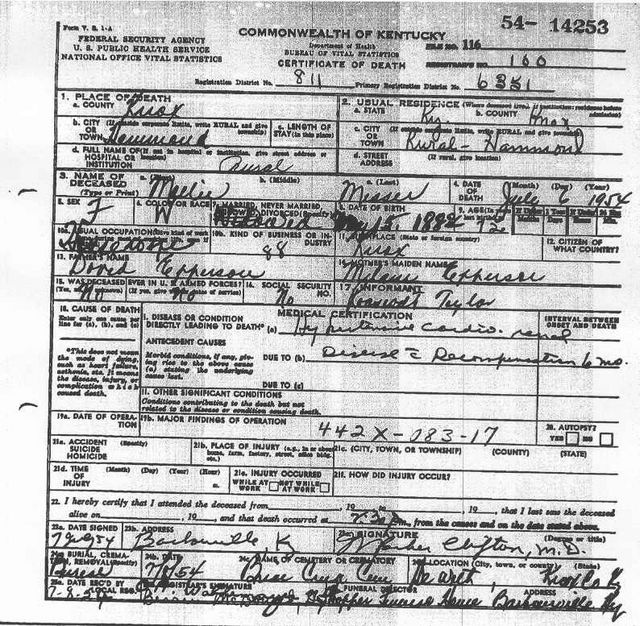 Form V. S. 1-A
54- 14253
COMMONWEALTH OF KENTUCKY
FEDERAL SECURITY AGENCY
U. S. PUBLIC HEALTH SERVICE
NATIONAL OFFICE VITAL STATISTICS
Department of Health
BUREAU OF VITAL STATISTICS
CERTIFICATE OF DEATH
FILE NO. 116
REGISTRAR'S NO. 100
Registration District No. 811 Primary Registration District No. 6351
1. PLACE OF DEATH
a. COUNTY Knox
2. USUAL RESIDENCE (Where deceased lived. If institution: residence before admission)
a. STATE Ky. b. COUNTY Knox
b. CITY OR TOWN Hammond
c. LENGTH OF STAY (in this place)
c. CITY OR TOWN Rural- Hammond
d. FULL NAME OF HOSPITAL OR INSTITUTION Rural
d. STREET ADDRESS (If rural, give location)
3. NAME OF DECEASED (Type or Print) a. (First) Mollie b. (Middle) c. (Last) Messer
4. DATE OF DEATH (Month) (Day) (Year) July 6 1954
5. SEX F 6. COLOR OR RACE W 7. MARRIED, NEVER MARRIED, WIDOWED, DIVORCED (Specify) 8. DATE OF BIRTH 15 1882 9. AGE (In years last birthday) 72
10a. USUAL OCCUPATION (Give kind of work 10b. KIND OF BUSINESS OR INDUSTRY 88 11. BIRTHPLACE (State or foreign country) Knox 12. CITIZEN OF WHAT COUNTRY?
13. FATHER'S NAME David Epperson
14. MOTHER'S MAIDEN NAME Epperson
15. WAS DECEASED EVER IN U. S. ARMED FORCES? (Yes, no, or unknown) (If yes, give war or dates of service) No No
16. SOCIAL SECURITY NO. No
17. INFORMANT Roosevelt Taylor
18. CAUSE OF DEATH
Enter only one cause per line for (a), (b), and (c)
MEDICAL CERTIFICATION
INTERVAL BETWEEN ONSET AND DEATH
I. DISEASE OR CONDITION DIRECTLY LEADING TO DEATH* (a) Hypertensive Cardio. renal
*This does not mean the mode of dying, such as heart failure, asthenia, etc. It means the disease, injury, or complication which caused death.
ANTECEDENT CAUSES
Morbid conditions, if any, giving rise to the above cause (a) stating the underlying cause last.
DUE TO (b) Disease c Decompensation 6 mo.
DUE TO (c)
II. OTHER SIGNIFICANT CONDITIONS
Conditions contributing to the death but not related to the disease or condition causing death.
19a. DATE OF OPERATION
19b. MAJOR FINDINGS OF OPERATION
442X-083-17
20. AUTOPSY? YES NO
21a. ACCIDENT SUICIDE HOMICIDE (Specify)
21b. PLACE OF INJURY (e.g., in or about home, farm, factory, street, office bldg., etc.)
21c. (CITY, TOWN, OR TOWNSHIP) (COUNTY) (STATE)
21d. TIME OF INJURY (Month) (Day) (Year) (Hour)
21e. INJURY OCCURRED WHILE AT WORK NOT WHILE AT WORK
21f. HOW DID INJURY OCCUR?
22. I hereby certify that I attended the deceased from , 19 , to , 19 , that I last saw the deceased
alive on , 19 , and that death occurred at m., from the causes and on the date stated above.
23a. DATE SIGNED 7-9-54 23b. ADDRESS Barbourville K 23c. SIGNATURE Clifton, M.D. (Degree or title)
24a. BURIAL, CREMATION, REMOVAL (Specify) 24b. DATE 7/7/54 24c. NAME OF CEMETERY OR CREMATORY Cem 24d. LOCATION (City, town, or county) (State) De Witt, Knox Co Ky
25a. DATE REC'D BY LOCAL REG. 7-9-54 REGISTRAR'S SIGNATURE FUNERAL DIRECTOR Hopper Funeral Home ADDRESS Barbourville Ky